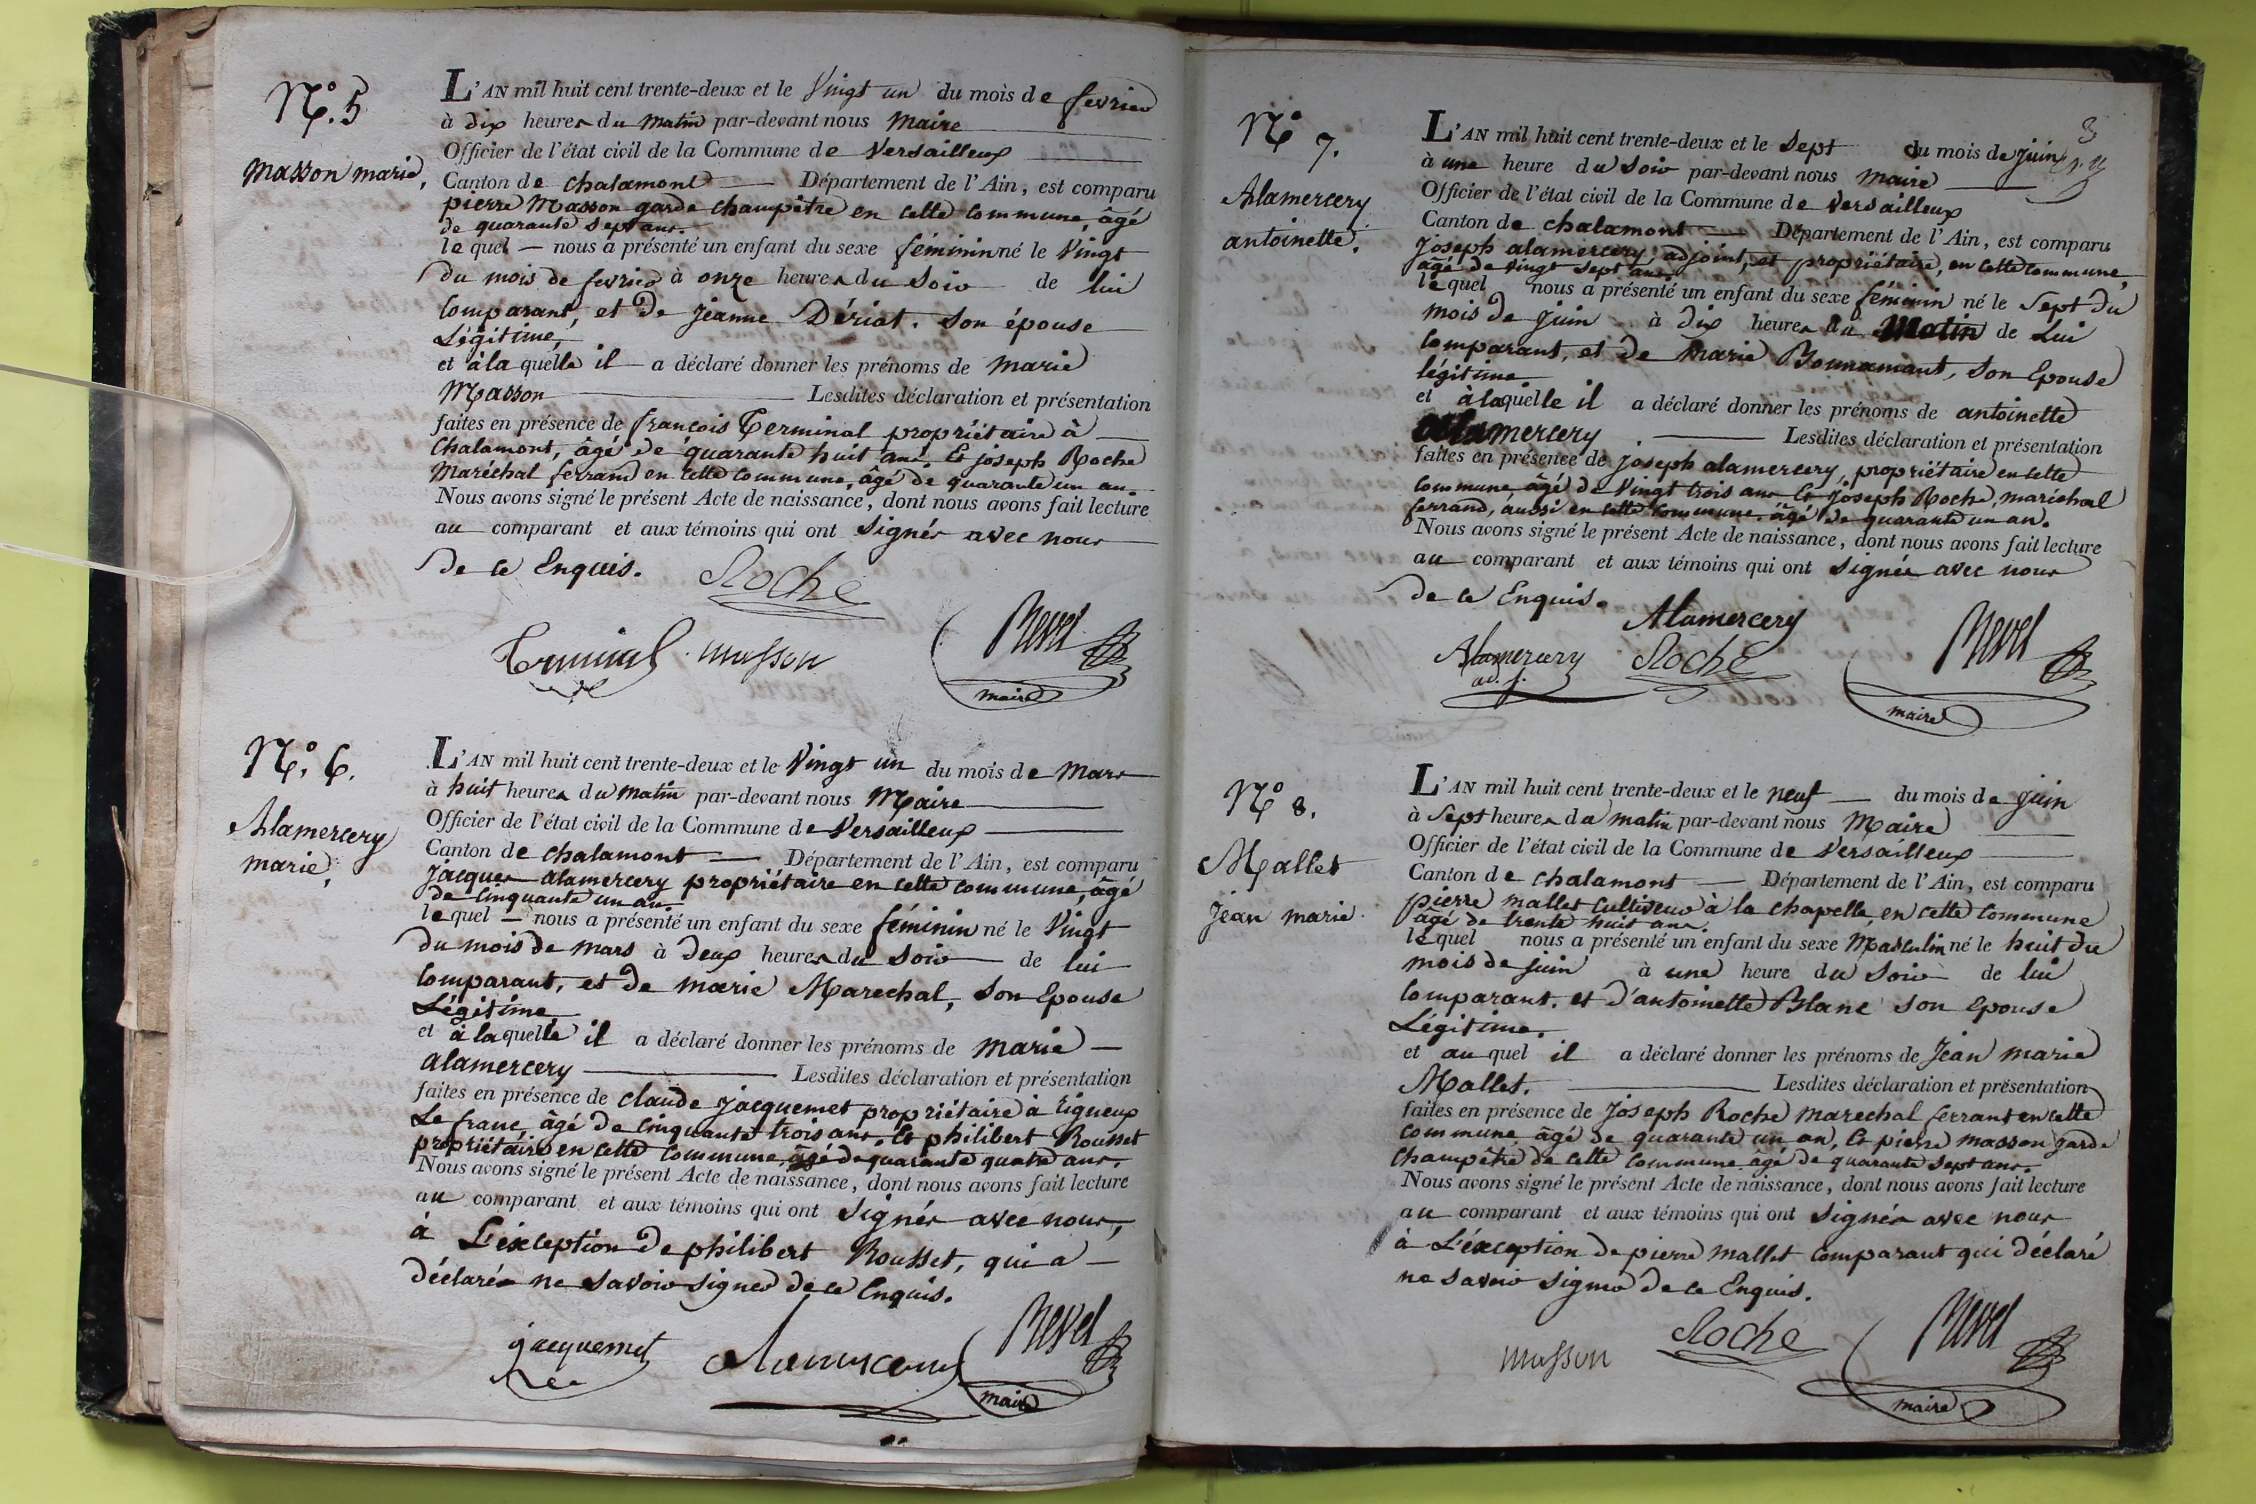 N.° 5
Masson marie,
L'AN mil huit cent trente-deux et le Vingt un du mois de fevrier
à dix heures du matin par-devant nous Maire
Officier de l'état civil de la Commune de Versailleux
Canton de chalamont Département de l'Ain, est comparu
pierre Masson garde champêtre en cette commune, âgé
de quarante sept ans.
lequel nous a présenté un enfant du sexe féminin né le Vingt
du mois de fevrier à onze heures du Soir de lui
Comparant, et de jeanne Dériat. Son épouse
Légitime,
et à laquelle il a déclaré donner les prénoms de marie
Masson Lesdites déclaration et présentation
faites en présence de françois Terminal propriétaire à
Chalamont, âgé de quarante huit ans. Et joseph Roche
Maréchal ferrand en cette commune, âgé de quarante un an.
Nous avons signé le présent Acte de naissance, dont nous avons fait lecture
au comparant et aux témoins qui ont Signés avec nous
De ce Enquis.
Roche
Terminal masson
Revel
maire
N.° 6.
Alamercery
marie,
L'AN mil huit cent trente-deux et le Vingt un du mois de Mars
à huit heures du matin par-devant nous Maire
Officier de l'état civil de la Commune de Versailleux
Canton de chalamont Département de l'Ain, est comparu
Jacques alamercery propriétaire en cette commune, âgé
de Cinquante un an.
lequel nous a présenté un enfant du sexe féminin né le Vingt
du mois de Mars à deux heures du Soir de lui
Comparant, et de marie Marechal, Son Epouse
Légitime
et à laquelle il a déclaré donner les prénoms de marie
alamercery Lesdites déclaration et présentation
faites en présence de claude jacquemet propriétaire à Rigneux
Le franc, âgé de Cinquante trois ans. Et philibert Rousset
propriétaire en cette commune, âgé de quarante quatre ans.
Nous avons signé le présent Acte de naissance, dont nous avons fait lecture
au comparant et aux témoins qui ont Signés avec nous,
à L'éxception de philibert Rousset, qui a
déclaré ne Savoir Signer de ce Enquis.
jacquemet Alamercery
Revel
maire
3
N.° 7.
Alamercery
antoinette.
L'AN mil huit cent trente-deux et le Sept du mois de juin
à une heure du Soir par-devant nous maire
Officier de l'état civil de la Commune de Versailleux
Canton de chalamont Département de l'Ain, est comparu
joseph alamercery adjoint, et propriétaire, en cette commune,
âgé de vingt sept ans.
lequel nous a présenté un enfant du sexe féminin né le Sept du
mois de juin à dix heures du Matin de Lui
Comparant, et de marie Bonnamant, Son Epouse
légitime
et à laquelle il a déclaré donner les prénoms de antoinette
alamercery. Lesdites déclaration et présentation
faites en présence de joseph alamercery, propriétaire en cette
commune, âgé de Vingt trois ans Et joseph Roche, maréchal
ferrand, aussi en cette commune, âgé de quarante un an.
Nous avons signé le présent Acte de naissance, dont nous avons fait lecture
au comparant et aux témoins qui ont Signés avec nous
de ce Enquis.
Alamercery
Alamercery
adj.
Roche
Revel
maire
N.° 8.
Mallet
Jean marie.
L'AN mil huit cent trente-deux et le neuf du mois de juin
à Sept heures du matin par-devant nous Maire
Officier de l'état civil de la Commune de Versailleux
Canton de chalamont Département de l'Ain, est comparu
pierre mallet Cultiveur à la chapelle en cette commune
âgé de trente huit ans.
lequel nous a présenté un enfant du sexe Masculin né le huit du
mois de juin à une heure du Soir de lui
Comparant. et d'antoinette Blanc Son Epouse
Légitime.
et auquel il a déclaré donner les prénoms de Jean marie
Mallet. Lesdites déclaration et présentation
faites en présence de Joseph Roche marechal ferrant en cette
commune, âgé de quarante un an, Et pierre masson garde
Champêtre de cette commune âgé de quarante Sept ans.
Nous avons signé le présent Acte de naissance, dont nous avons fait lecture
au comparant et aux témoins qui ont Signés avec nous
à L'éxception de pierre Mallet Comparant qui déclaré
ne Savoir Signer de ce Enquis.
masson
Roche
Revel
maire